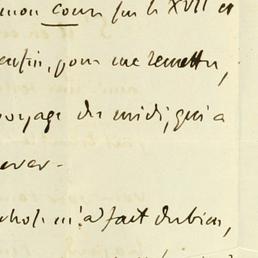 mon cours sur le XVII et
enfin, pour me remettre,
voyage du midi, qui a
m'a fait du bien,